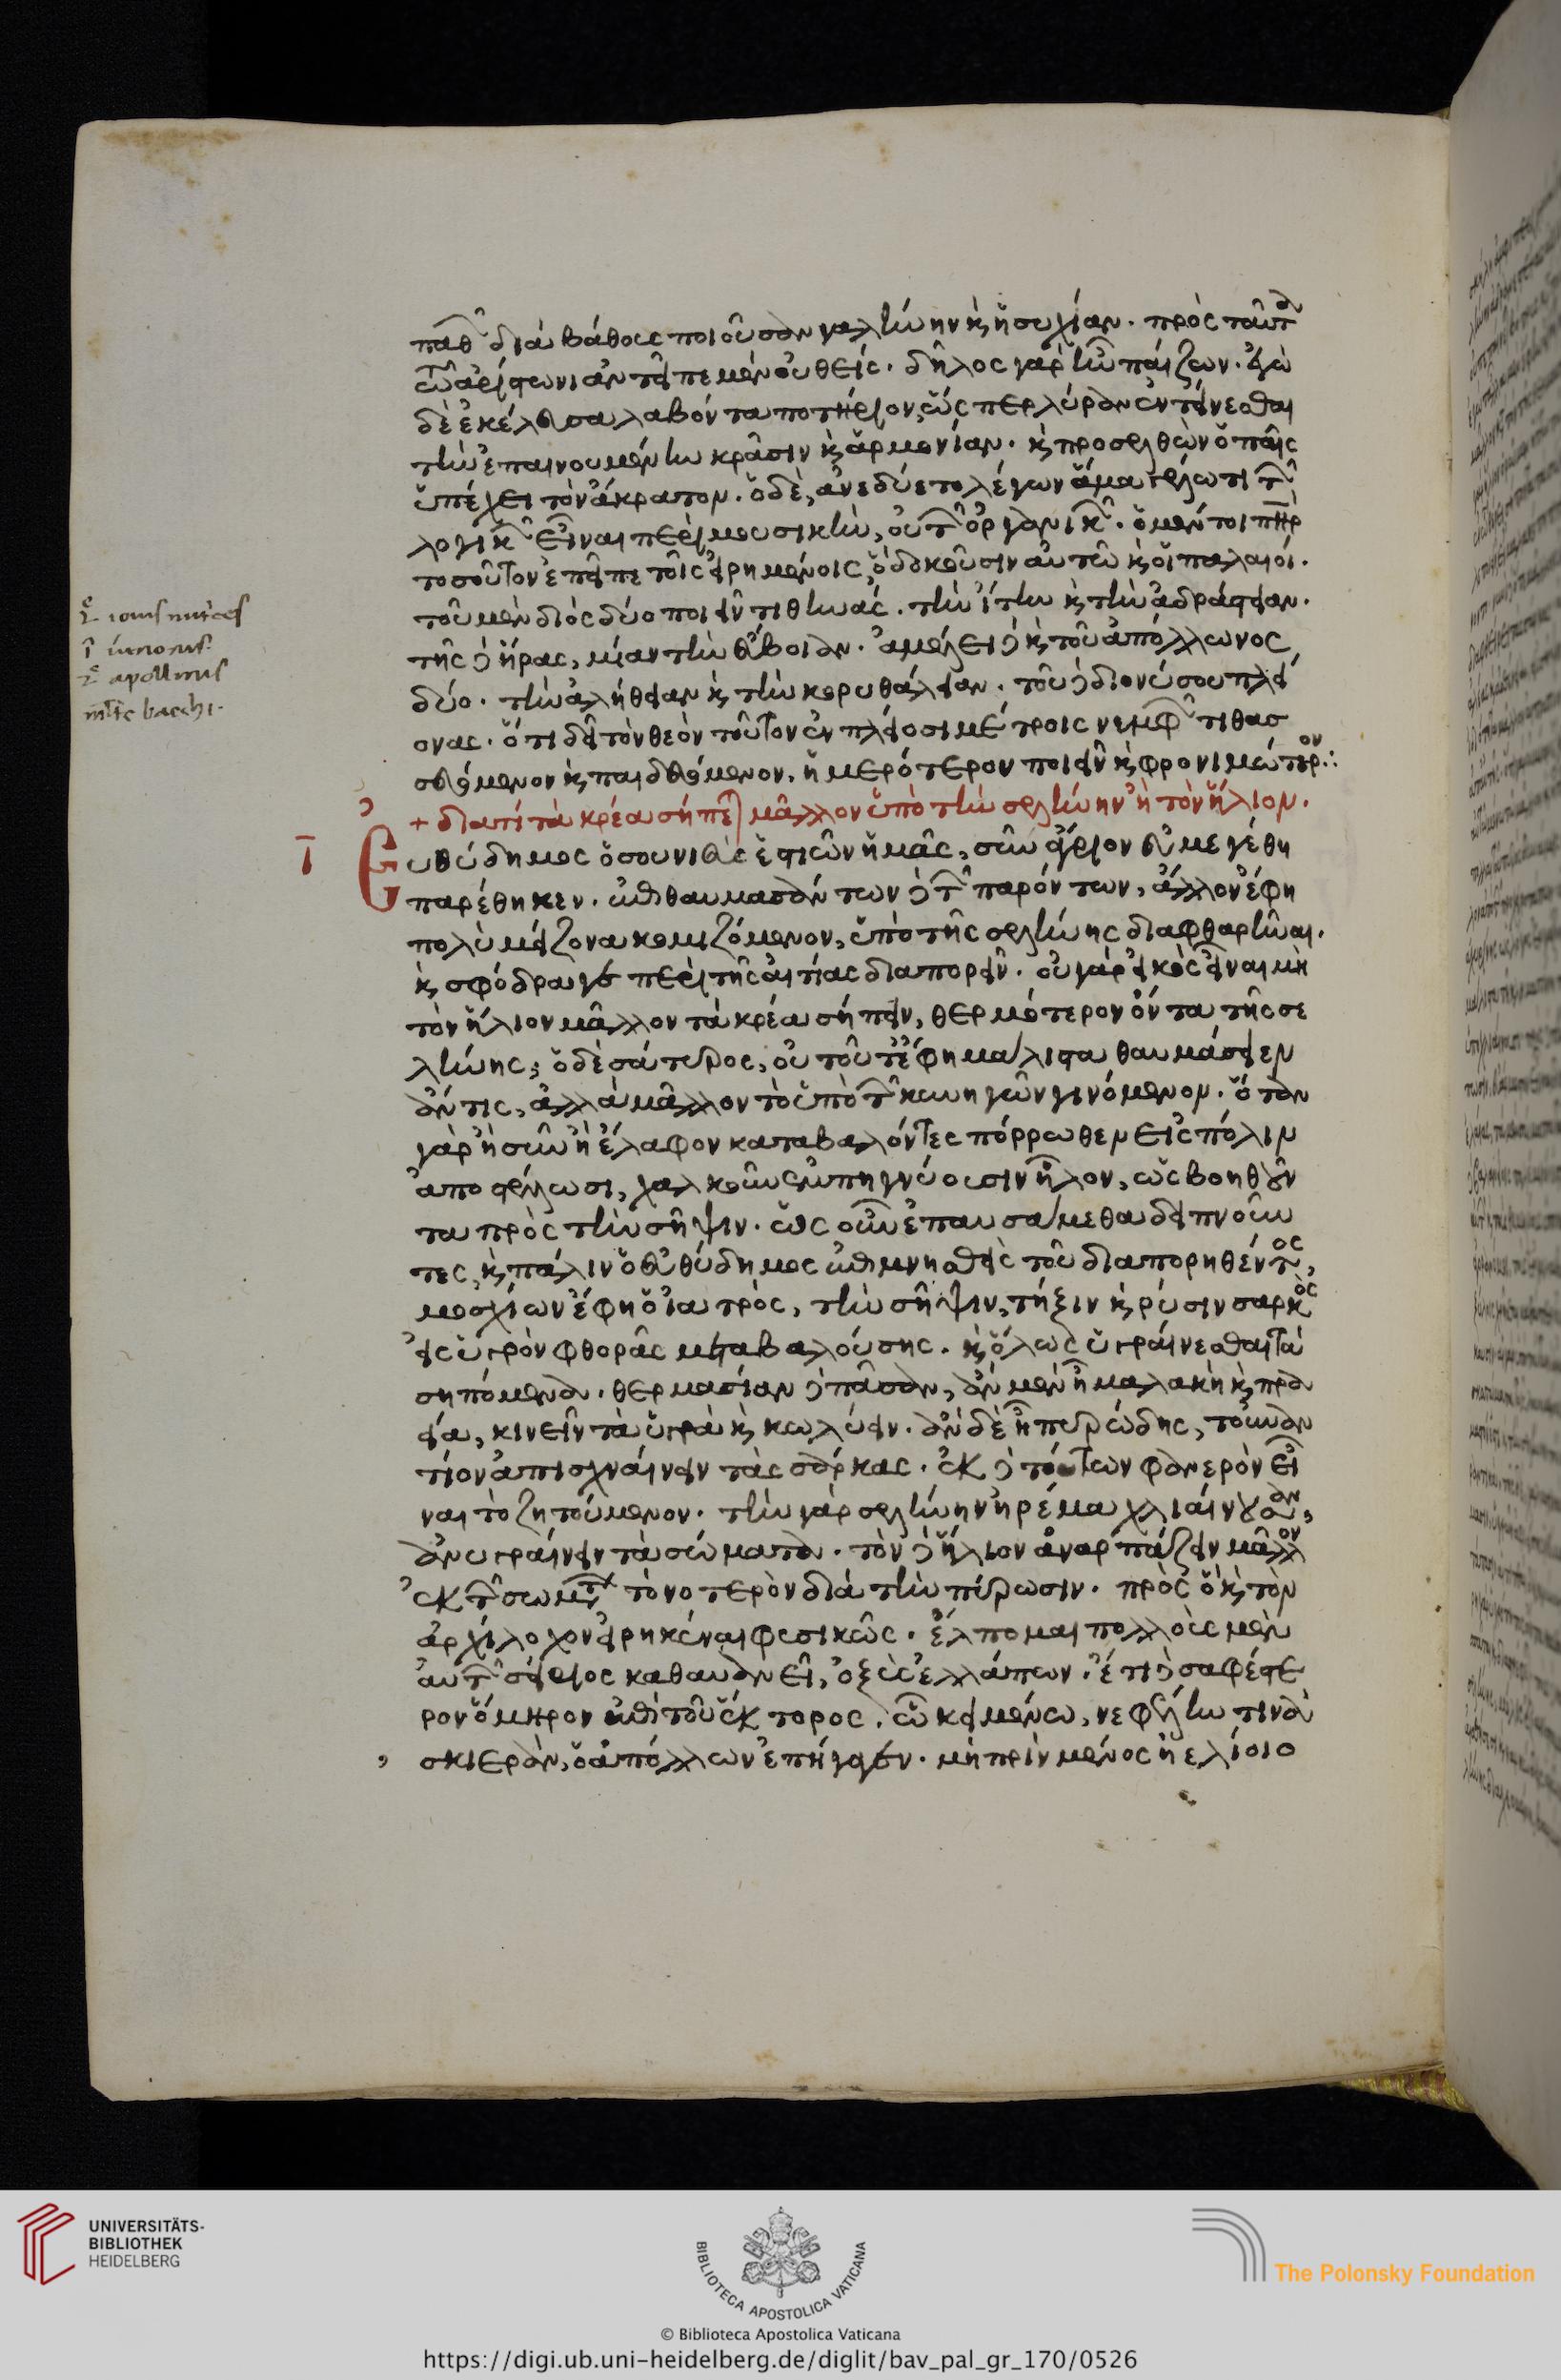 παθῶν διὰ βάθους ποιοῦσαν γαλήνην καὶ ἡσυχίαν. πρὸς ταῦτα
τῶ ἀρίστωνι ἀντεῖπε μὲν οὐθείς. δῆλος γὰρ ἦν παίζων. ἐγὼ
δὲ ἐκέλευσα λαβόντα ποτήριον, ὥς περ λύραν ἐντείνεσθαι
τὴν ἐπαινουμένην κρᾶσιν καὶ ἁρμονίαν. καὶ προσελθὼν ὁ παῖς
ὑπέχει τὸν ἄκρατον. ὁ δὲ, ἀνεδύετο λέγων ἅμα γέλωτι τῶν
λογικῶν εἶναι περὶ μουσικὴν, οὐ τῶν ὀργανικῶν. ὁ μέντοι πατὴρ
τοσοῦτον ἐπεῖπε τοῖς εἰρημένοις, ὃ δοκοῦσιν αὐτῶ καὶ οἱ παλαιοί.
τοῦ μὲν διὸς δύο ποιεῖν τιθηνάς. τὴν ἴτην καὶ τὴν ἀδράστειαν.
τῆς δὲ ἥρας, μίαν τὴν εὔβοιαν. ἀμέλει δὲ καὶ τοῦ ἀπόλλωνος
δύο. τὴν ἀλήθειαν καὶ τὴν κορυθάλειαν. τοῦ δὲ διονύσου πλεί
ονας. ὅτι δεῖ τὸν θεὸν τοῦτον ἐν πλείοσι μέτροις νυμφῶν τιθασ
σευόμενον καὶ παιδευόμενον, ἡμερότερον ποιεῖν καὶ φρονιμώτερον:
2e iouis nutrices
i iunonis
2e apollinis
multe bacchi.
+ διατί τὰ κρέα σήπεται μᾶλλον ὑπὸ τὴν σελήνην ἢ τὸν ἥλιον.
ι Εὐθύδημος ὁ σουνιεὺς ἑστιῶν ἡμᾶς, σῦν ἄγριον εὐμεγέθη
παρέθηκεν. ἐπιθαυμασάντων δὲ τῶν παρόντων, ἄλλον ἔφη
πολὺ μείζονα κομιζόμενον, ὑπὸ τῆς σελήνης διαφθαρῆναι.
καὶ σφόδρα γε περὶ τῆς αἰτίας διαπορεῖν. οὐ γὰρ εἰκὸς εἶναι μὴ
τὸν ἥλιον μᾶλλον τὰ κρέα σήπειν, θερμότερον ὄντα τῆς σε
λήνης; ὁ δὲ σάτυρος, οὐ τοῦτ' ἔφη μάλιστα θαυμάσειεν
ἄν τις, ἀλλὰ μᾶλλον τὸ ὑπὸ τῶν κυνηγῶν γινόμενον. ὅταν
γὰρ ἢ σῦν ἢ ἔλαφον καταβαλόντες πόρρωθεν εἰς πόλιν
ἀποστέλωσι, χαλκοῦν ἐμπηγνύουσιν ἧλον, ὡς βοηθοῦν
τα πρὸς τὴν σῆψιν. ὡς οὖν ἐπαυσάμεθα δειπνοῦν
τες, καὶ πάλιν ὁ εὐθύδημος ἐπιμνησθεὶς τοῦ διαπορηθέντος,
μοσχίων ἔφη ὁ ἰατρὸς, τὴν σῆψιν, τῆξιν καὶ ρύσιν σαρκὸς
εἰς ὑγρὸν φθορᾶς μεταβαλούσης. καὶ ὅλως ὑγραίνεσθαι τὰ
σηπόμενα. θερμασίαν δὲ πᾶσαν, ἂν μὲν ἦ μαλακὴ καὶ πρα
εία, κινεῖν τὰ ὑγρὰ καὶ κωλύειν. ἂν δὲ ἦ πυρώδης, τοὐναν
τίον ἀπισχναίνειν τὰς σάρκας. ἐκ δὲ τούτων φανερὸν εἶ
ναι τὸ ζητούμενον. τὴν γὰρ σελήνην ἠρέμα χλιαίνουσαν,
ἀνυγραίνειν τὰ σώματα. τὸν δὲ ἥλιον ἀναρπάζειν μᾶλλον
ἐκ τῶν σωμάτων τὸ νοτερὸν διὰ τὴν πύρωσιν. πρὸς ὃ καὶ τὸν
ἀρχίλοχον εἰρηκέναι φυσικῶς. ἔλπομαι πολλοὺς μὲν
αὐτῶν σείριος καθαυανεῖ, ὀξὺς ἐλλάμπων. ἔτι δὲ σαφέστε
ρον ὅμηρον ἐπὶ τοῦ ἕκτορος. ὧ κειμένω, νεφέλην τινὰ
σκιερὰν, ὁ ἀπόλλων ἐπήγαγεν. μὴ πρὶν μένος ἠελίοιο
UNIVERSITÄTS-
BIBLIOTHEK
HEIDELBERG
BIBLIOTECA APOSTOLICA VATICANA
The Polonsky Foundation
© Biblioteca Apostolica Vaticana
https://digi.ub.uni-heidelberg.de/diglit/bav_pal_gr_170/0526